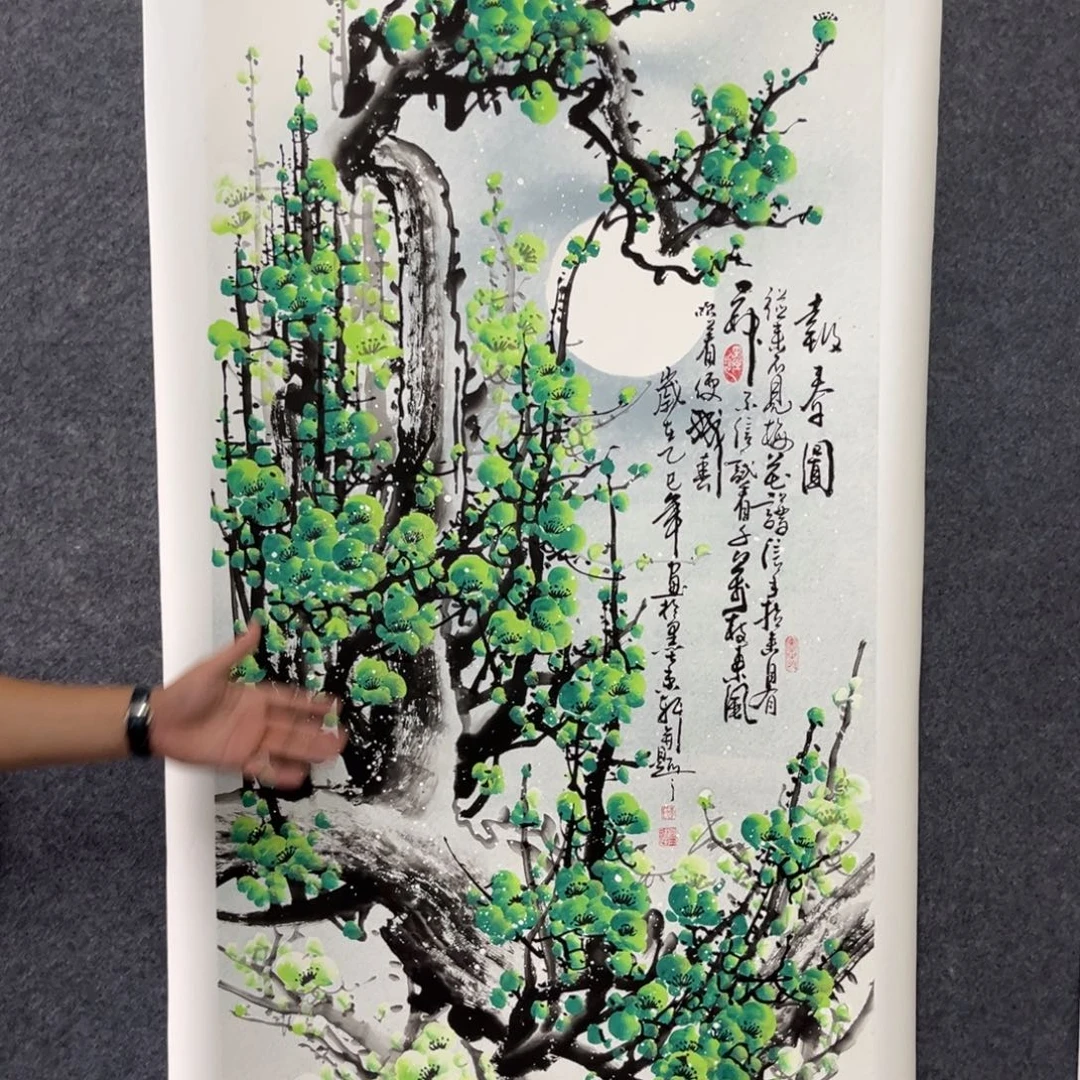 報春圖
從來不見梅花譜信手拈來自有
神不信試看千萬樹東風
吹着便成春
歲在乙巳年畫於題